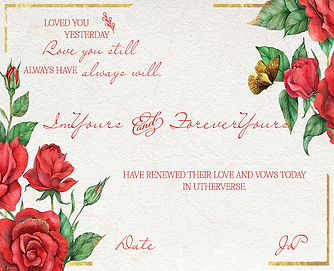 LOVED YOU
YESTERDAY
Love you still
ALWAYS HAVE always will,
ImYours and ForeverYours
HAVE RENEWED THEIR LOVE AND VOWS TODAY
IN UTHERVERSE.
Date JP